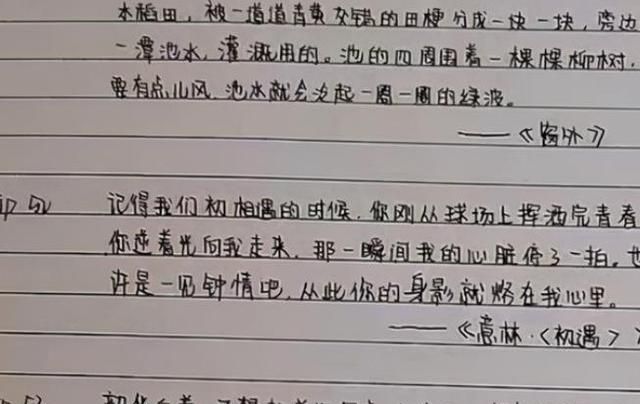 本稻田，被一道道青黄交错的田梗分成一块一块，旁边
一潭池水，灌溉用的。池的四周围着一棵棵柳树，
要有点儿风，池水就会泛起一圈一圈的绿波。
——《窗外》
记得我们初相遇的时候，你刚从球场上挥洒完青春
你逆着光向我走来，那一瞬间我的心脏停了一拍，也
许是一见钟情吧，从此你的身影就烙在我心里。
——《意林·〈初遇〉》